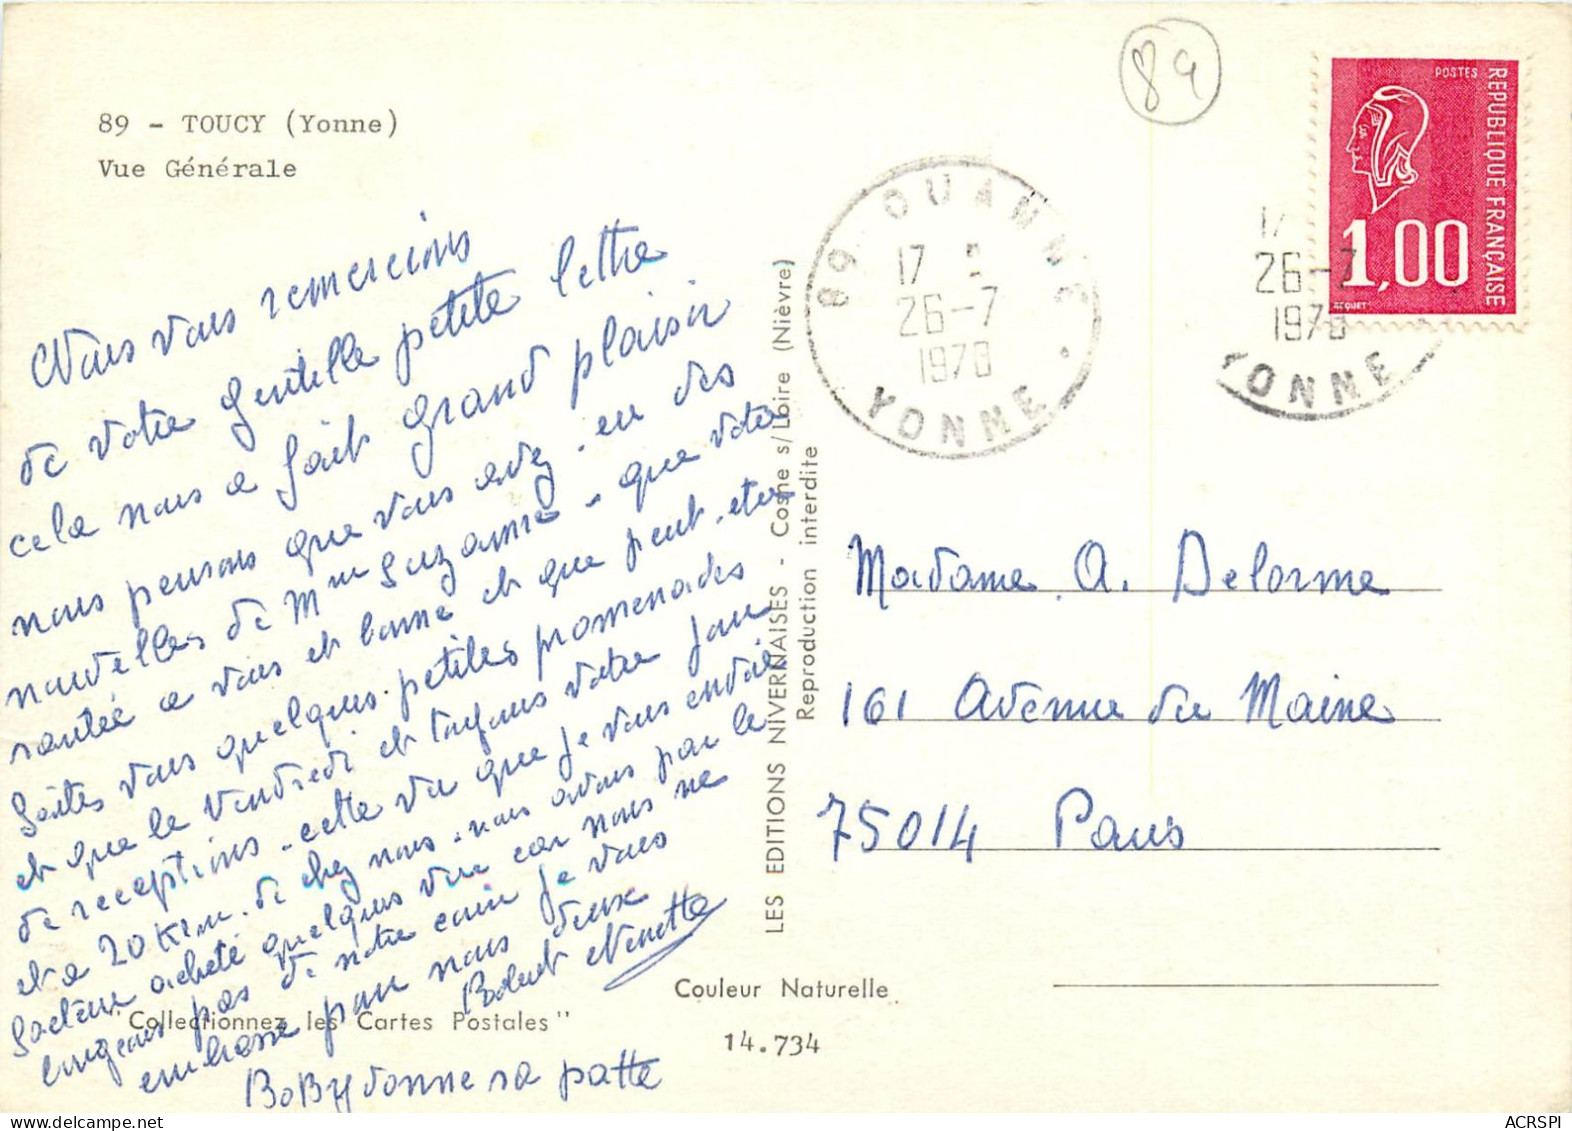 89 - TOUCY (Yonne)
Vue Générale
Nous vous remercions
de votre gentille petite lettre
cela nous a fait grand plaisir
nous pensons que vous avez eu des
nouvelles de Mme Suzanne - que votre
santée a vous est bonne et que peut etre
faites vous quelques petites promenades
et que le vendredi est toujours votre jour
de receptions. cette vue que je vous envoie
est a 20 Klm. de chez nous. nous avons par le
facteur acheté quelques vue car nous ne
bougeons pas de notre coin je vous
embrasse pour nous deux
Robert Nenette
BOBY donne sa patte
89
POSTES
REPUBLIQUE FRANÇAISE
1,00
BEQUET
89 OUANNE
17
26-7
1978
YONNE
17
26-7
1978
YONNE
LES EDITIONS NIVERNAISES - Cosne s/Loire (Nièvre)
Reproduction interdite
Madame A. Delorme
161 Avenue du Maine
75014 Paris
Couleur Naturelle
"Collectionnez les Cartes Postales"
14.734
ACRSPI